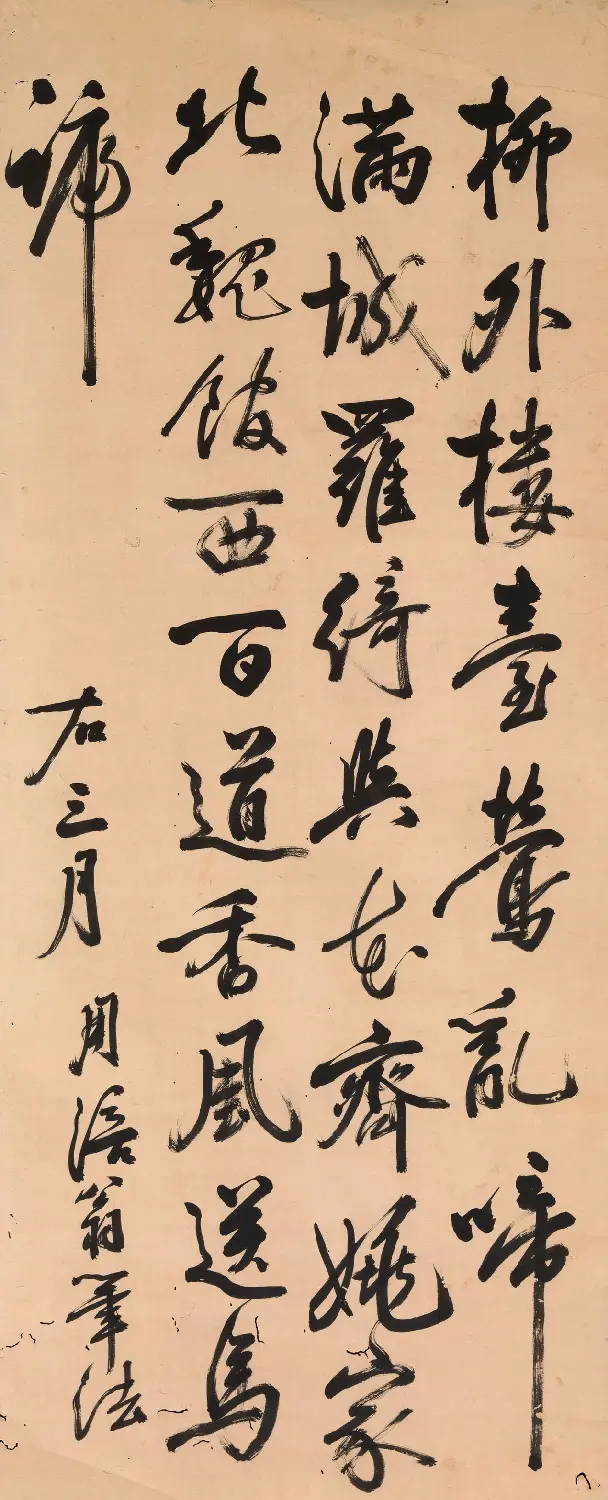 柳外樓臺鶯亂啼
滿城羅綺與花齊姚家
北魏館西百道香風送馬
蹄
右三月
用涪翁筆法